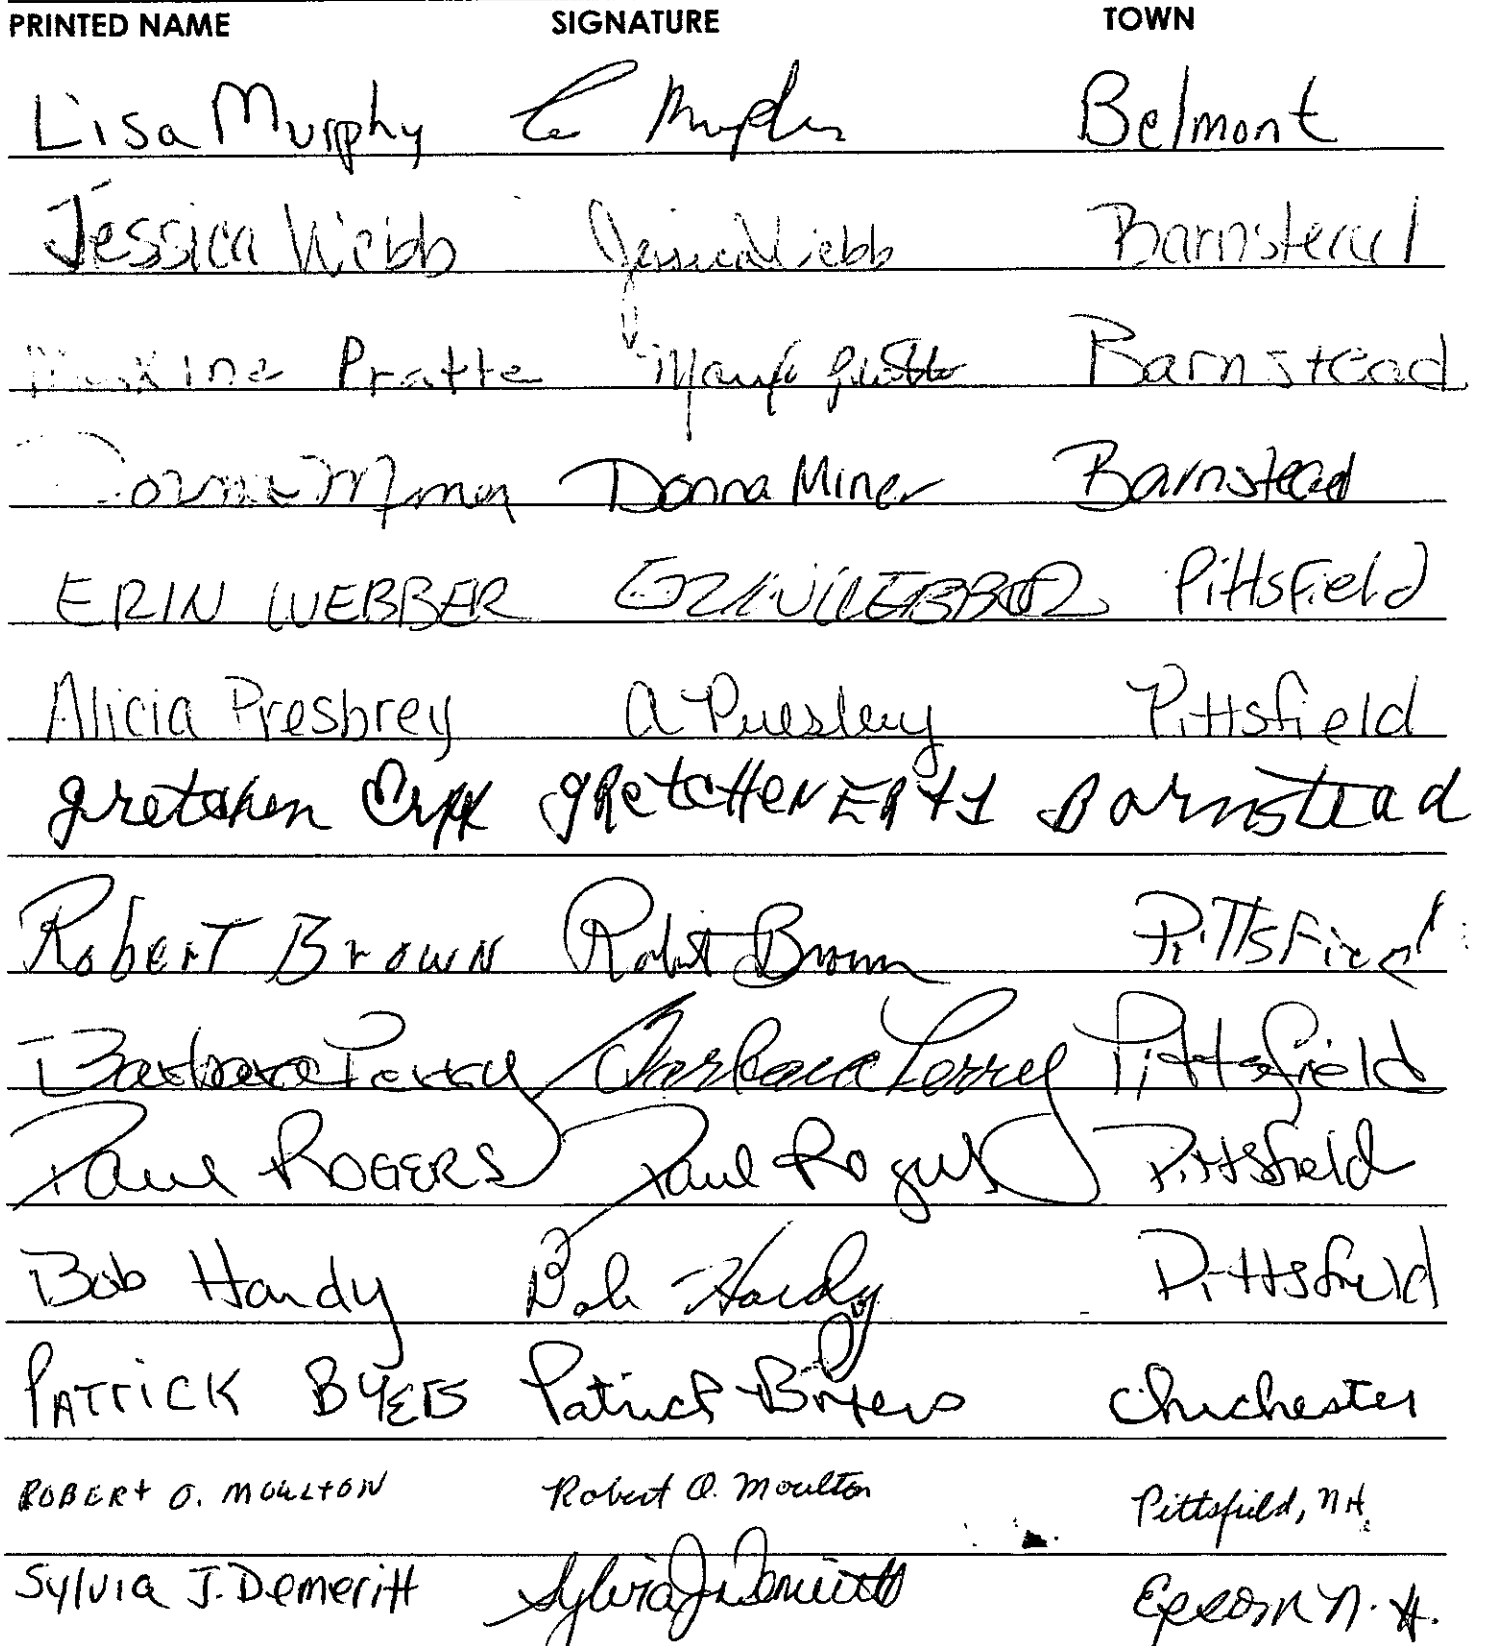 PRINTED NAME SIGNATURE TOWN
Lisa Murphy Murphy Belmont
Jessica Webb Jessica Webb Barnstead
Pratte Barnstead
Donna Miner Barnstead
ERIN WEBBER ERIN WEBBER Pittsfield
Alicia Presbrey A Presbrey Pittsfield
gretchen gRetcHeN Barnstead
Robert Brown Robert Brown Pittsfield
Barbara Perry Barbara Perry Pittsfield
Paul ROGERS Paul Rogers Pittsfield
Bob Hardy Bob Hardy Pittsfield
PATRICK BYERS Patrick Byers Chichester
ROBERT O. MOULTON Robert O. Moulton Pittsfield, NH.
Sylvia J. Demeritt Sylvia J. Demeritt Epsom N.H.